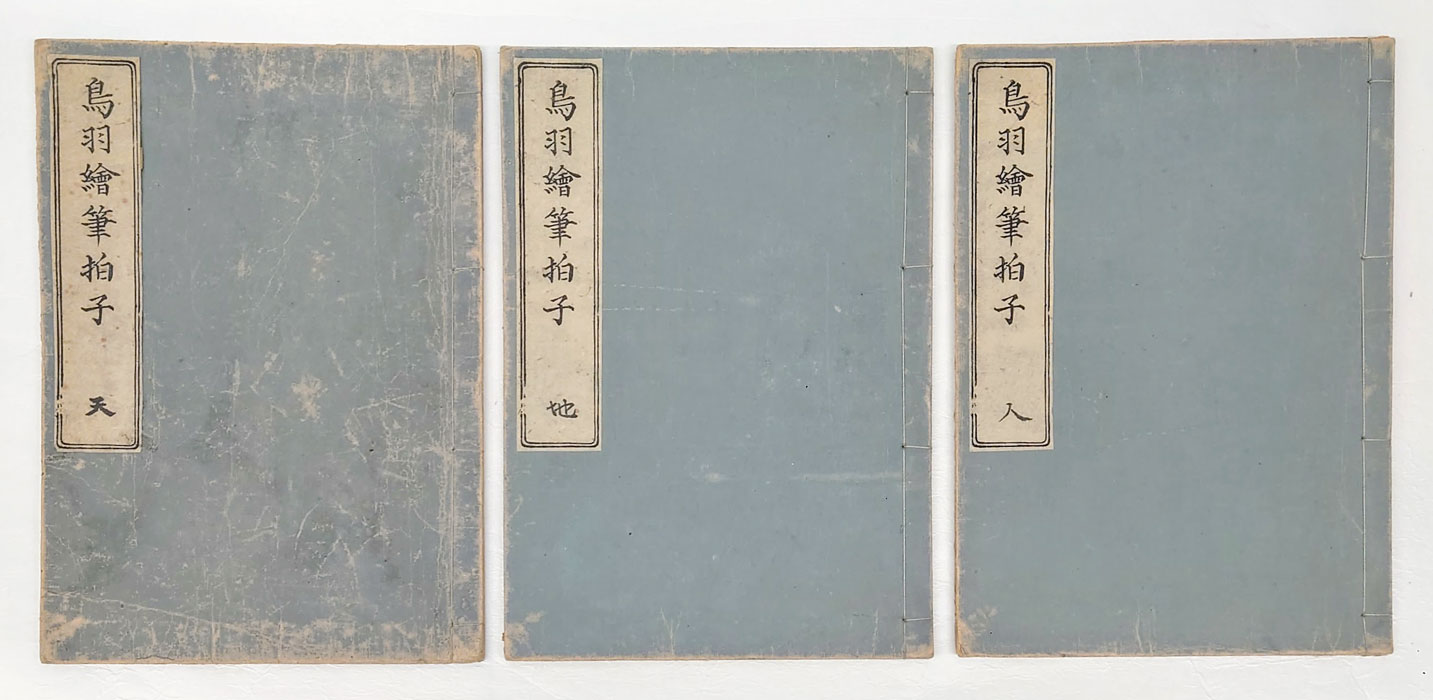 鳥羽繪筆拍子
天
鳥羽繪筆拍子
地
鳥羽繪筆拍子
人